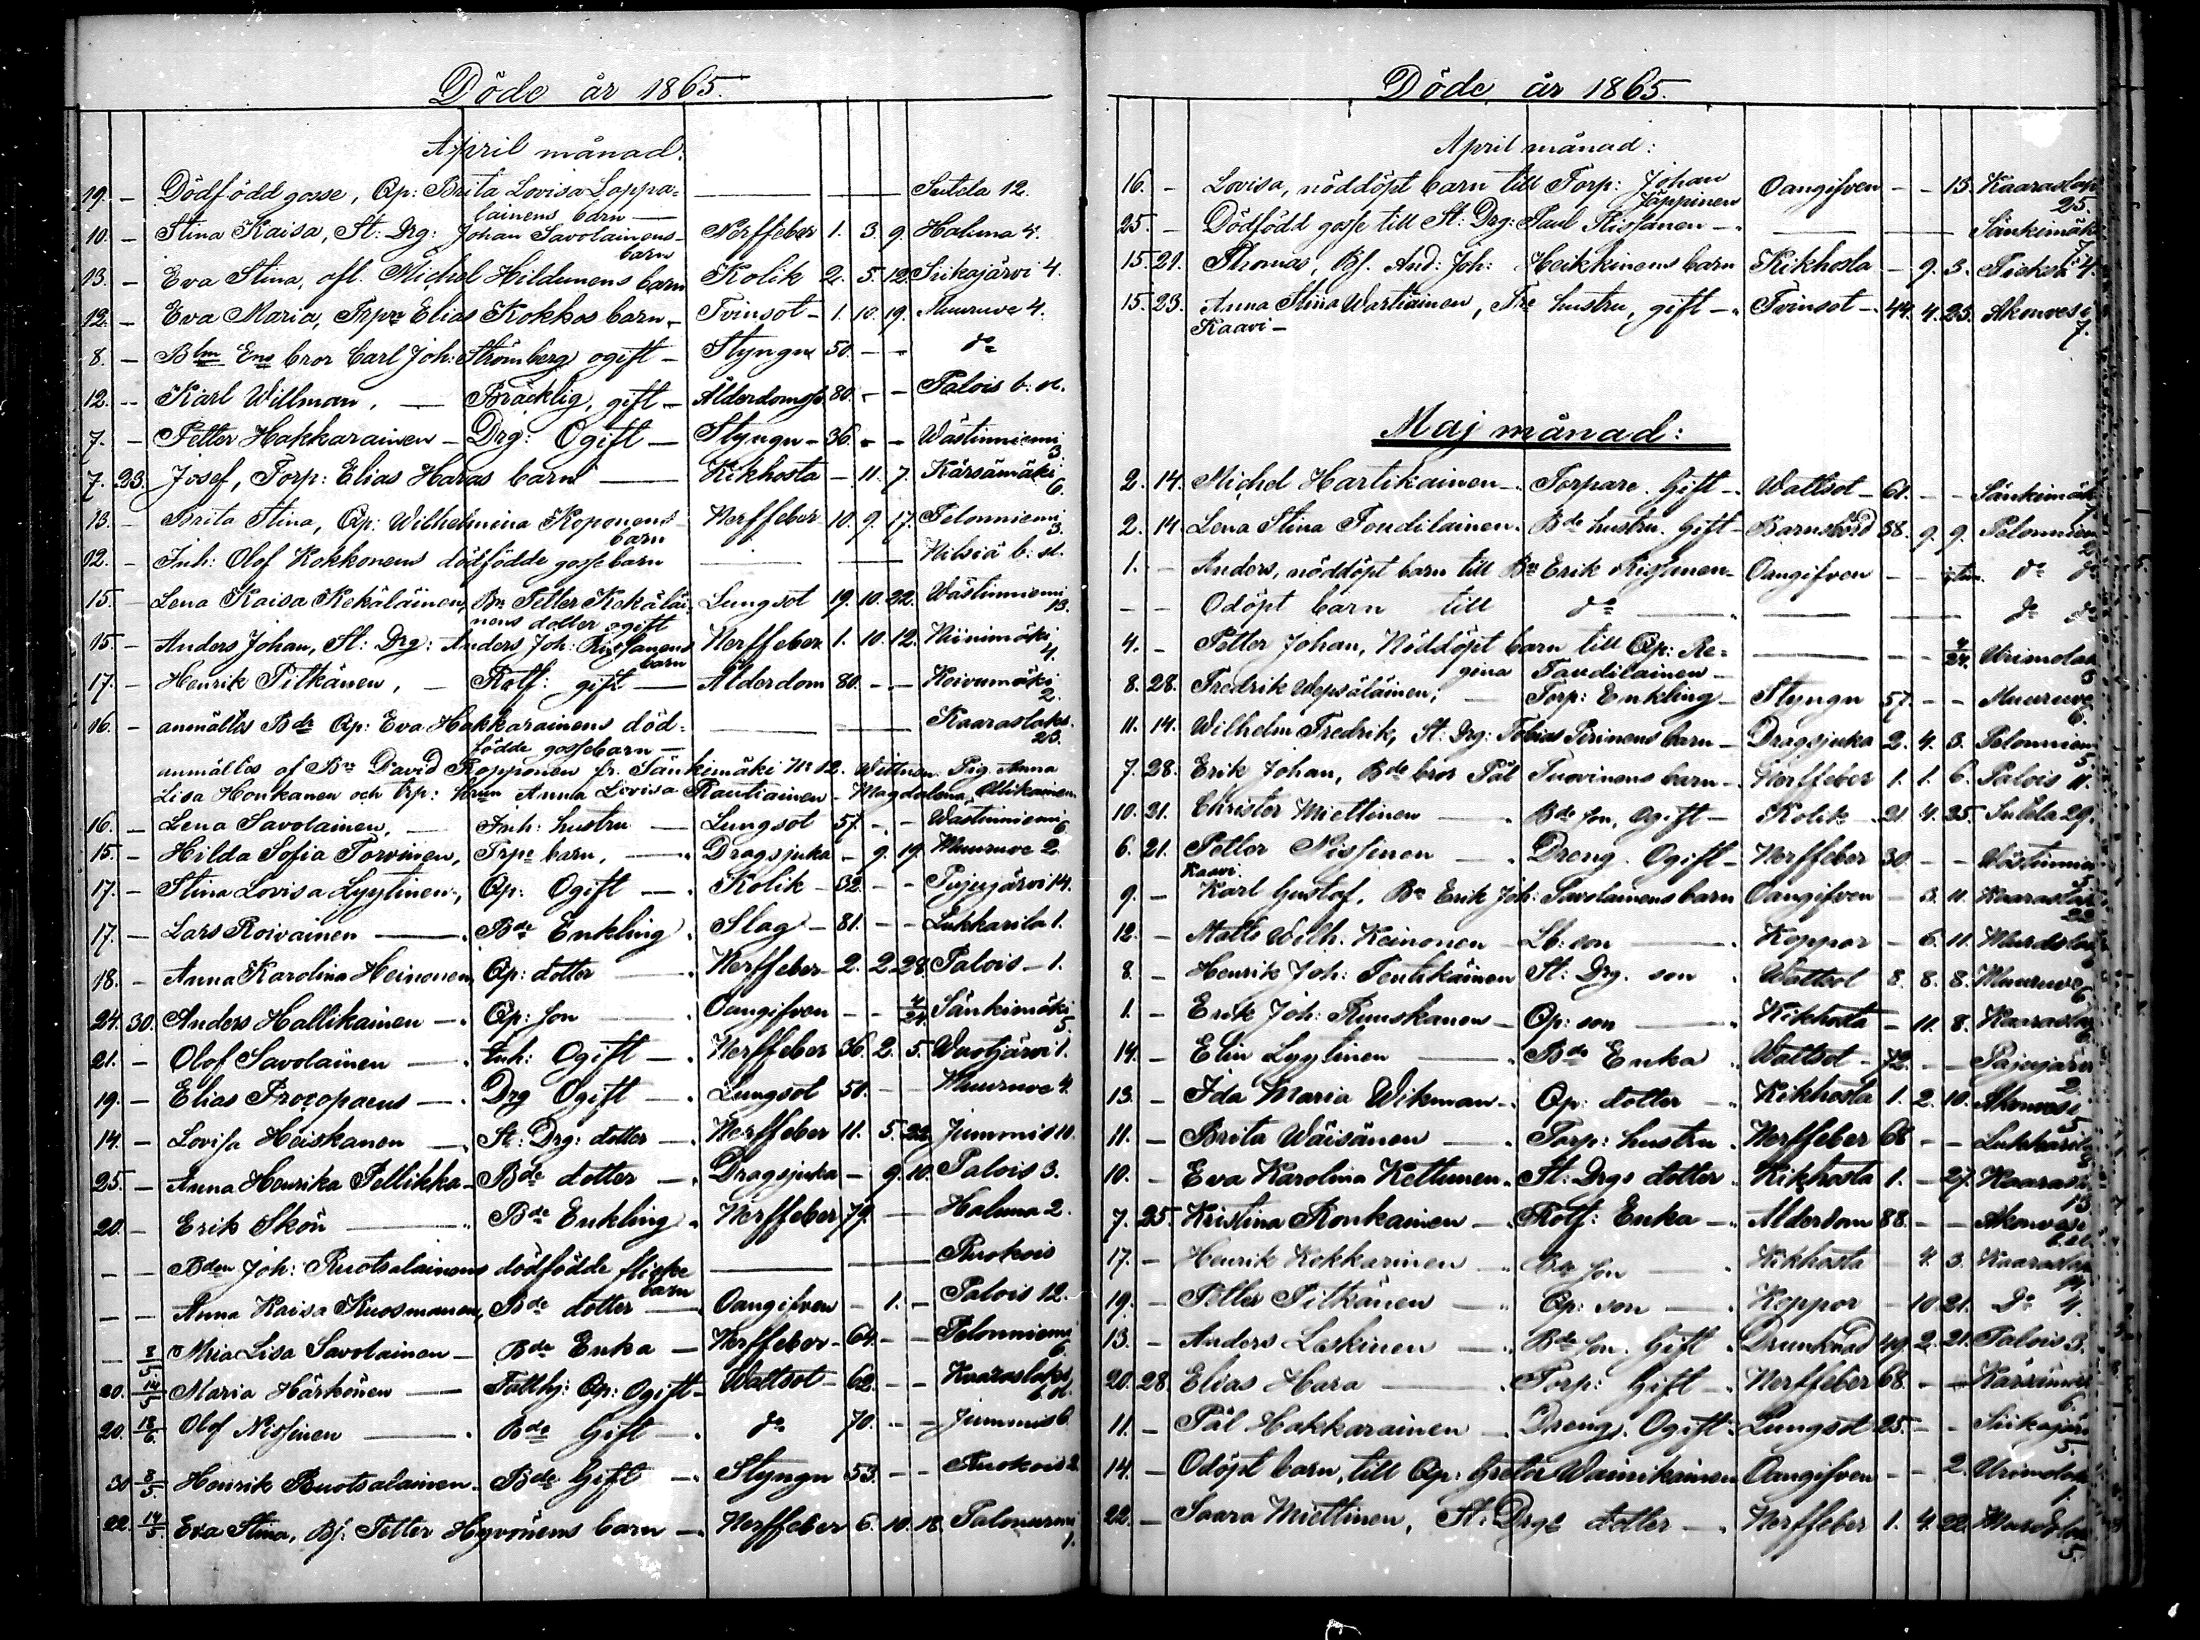 Döde år 1865.
April månad:
19. - Dödfödd gosse, Qp: Brita Lovisa Loppa= — — Sutela 12.
lainens barn —
10. - Stina Kaisa, St: Drg: Johan Savolainens Nerffeber 1. 3. 9. Haluna 4.
barn
13. - Eva Stina, afl. Michel Hildunens barn Kolik 2. 5. 12. Siikajärvi 4.
12. - Eva Maria, Trpre Elias Kokkos barn - Tvinsot - 1. 10. 19. Muuruve 4.
8. - Blm Ens bror Carl Joh: Strömberg ogift - Styngn 50. - - do
12. - Karl Willman. — Bräcklig, gift - Ålderdomsb. 80. - - Palois b: st.
7. - Petter Hakkarainen - Drg: Ogift - Styngn - 36. - - Västinniemi
3.
7. 23. Josef, Torp: Elias Haras barn — Kikhosta - 11. 7. Kärsämäki
6.
13. - Brita Stina, Qp: Wilhelmina Koponens Nerffeber 10. 9. 17. Pelonniemi
barn 3.
12. - Inh: Olof Kokkonens dödfödde gosse barn — — Nilsiä b: st.
15. - Lena Kaisa Kekäläinen, Bn Petter Kekäläi- Lungsot 19. 10. 22. Västinniemi
nens dotter ogift 13.
15. - Anders Johan, St: Drg: Anders Joh: Rissanens Nerffeber 1. 10. 12. Niinimäki
barn 4.
17. - Henrik Pitkänen, — Rotf: gift — Ålderdom 80. - - Koivumäki
2.
16. - anmältes Bde Qp: Eva Hakkarainens död= — — Kaaraslaks.
födde gossebarn — 23.
anmältes af Bn David Ropponen fr. Sänkimäki No 12. Wittnen: Pig. Anna
Lisa Honkanen och Anna Lovisa Rautiainen - Magdalena
16. - Lena Savolainen, — Inh: hustru — Lungsot 57. - - Västinniemi
6.
15. - Hilda Sofia Torvinen, Trpe barn, — Dragsjuka - 9. 19. Muuruve 2.
17. - Stina Lovisa Lyytinen, Qp: Ogift — Kolik - 32. - - Pajujärvi 14.
17. - Lars Roivainen — Bde Enkling. Slag - 81. - - Lukkarila 1.
18. - Anna Karolina Heinonen, Qp: dotter — Nerffeber 2. 2. 28. Palois - 1.
24. 30. Anders Hallikainen — Qp: son — Oangifven - - 4/24 Sänkimäki
5.
21. - Olof Savolainen — Inh: Ogift — Nerffeber 36. 2. 5. Vuotjärvi 1.
19. - Elias Procopaeus — Drg Ogift — Lungsot 51. - - Muuruve 4.
14. - Lovisa Heiskanen — St: Drg: dotter — Nerffeber 11. 5. 22. Jummis 11.
25. - Anna Henrika Pellikka - Bde dotter — Dragsjuka - 9. 10. Palois 3.
20. - Erik Skön — Bde Enkling. Nerffeber 79. - Haluna 2.
- - Bden Joh: Ruotsalainens dödfödde flicke — — Ruokois
barn
- - Anna Kaisa Kuosmanen, Bde dotter — Oangifven - 1. - Palois 12.
- 8/5 Maria Lisa Savolainen - Bde Enka — Nerffeber - 64. - - Pelonniemi
6.
20. 14/5 Maria Härkönen — Fatthj: Qp: Ogift - Wattsot - 62. - - Kaaraslaks
b. st.
20. 18/6. Olof Nissinen — Bde Gift — do 70. - - Jummis 6.
30 8/5. Henrik Ruotsalainen. Bde Gift — Styngn 53. - - Ruokois 2.
22. 14/5 Eva Stina, Bf: Petter Hyvönens barn — Nerffeber 6. 10. 18. Palonurmi
1.
Döde år 1865.
April månad:
16. - Lovisa, nöddöpt barn till Torp: Johan Oangifven - - 13. Kaaraslaks
Jäppinen 25.
25. - Dödfödd gosse till St: Drg: Paul Rissanen — — — Sänkimäki
7.
15. 21. Thomas, Bf. And: Joh: Heikkinens barn Kikhosta - 9. 3. 4.
15. 23. Anna Stina Wartiainen, Tre hustru, gift — Tvinsot - 44. 4. 25. Akonvesi
Kaavi - 7.
Maj månad:
2. 14. Michel Hartikainen — Torpare. Gift — Wattsot - 61. - - Sänkimäki
7.
2. 14. Lena Stina Tondilainen. Bde hustru. Gift - Barnsbörd 38. 9. 9. Pelonniem
2.
1. - Anders, nöddöpt barn till Bn Erik Rissanen - Oangifven - - do do
- - Odöpt barn till do — — — do do
4. - Petter Johan, Nöddöpt barn till Qp: Re= — - - 4/24. Urimolak
gina Taudilainen - 5
8. 28. Fredrik Wepsäläinen, — Torp: Enkling — Styngn 57. - - Muuruve
6.
11. 14. Wilhelm Fredrik, St: Drg: Tobias Pirinens barn — Dragsjuka 2. 4. 3. Pelonniem
5.
7. 28. Erik Johan, Bde bror Pål Tuovinens barn — Nerffeber 1. 1. 6. Palois 11.
10. 21. Christer Miettinen — Bde son, Ogift — Kolik — 21 4. 25. Sutela 29.
6. 21. Petter Nissinen — Dreng. Ogift — Nerffeber 30. - - Västinnie
Kaavi. 5
9. - Karl Gustaf, Bn Erik Joh: Savolainens barn Oangifven - 3. 11. Kaaraslak
22.
12. - Matts Wilh. Keinonen Lb: son — Koppor - 6. 11. Murdolak
8. - Henrik Joh: Pentikäinen St: Drg. son. Wattsot 8. 8. 8. Muuruve
6.
1. - Erik Joh: Ruuskanen — Qp: son — Kikhosta - 11. 8. Kaaraslak
6.
14. - Elin Lyytinen — Bde Enka. Wattsot - 72. - - Pajujärv
2.
13. - Ida Maria Wikman — Qp: dotter — Kikhosta 1. 2. 10. Akonvesi
5
11. - Brita Wäisänen — Torp: hustru. Nerffeber 68 - - Lukkaril
8
10. - Eva Karolina Kettunen. St: Drgs dotter. Kikhosta 1. - 27. Kaarasl
13.
7. 25. Kristina Ronkainen — Rotf: Enka — Ålderdom 88. - - Akonvesi
b. st.
17. - Henrik Kokkarinen — Bde son — Kikhosta - 4. 3. Kaaraslak
14.
19. - Petter Pitkänen — Qp: son — Koppor - 10. 21. Do 4.
13. - Anders Laskinen — Bde son. Gift - Drunknad 49. 2. 21. Palois 3.
20. 28. Elias Hara — Torp: Gift — Nerffeber 68. - - Kärsämäki
6.
11. - Pål Hakkarainen — Dreng. Ogift. Lungsot 25. - - Siikajärv
5.
14. - Odöpt barn, till Qp: Greta Wainikainen Oangifven - - 2. Urimolak
1.
22. - Saara Miettinen, St: Drgs dotter — Nerffeber 1. 4. 22. Murdolak
5.